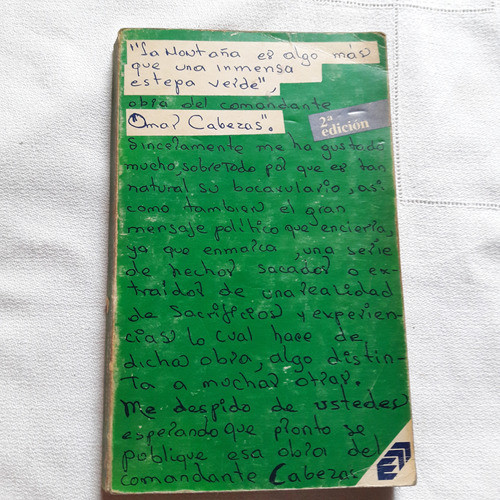 "La Montaña es algo más
que una inmensa
estepa verde",
obra del comandante
"Omar Cabezas".
2ª
edición
Sinceramente me ha gustado
mucho, sobretodo por que es tan
natural, su bocaculario, asi
como tambien el gran
mensaje político que encierra,
ya que enmarca, una serie
de hechos sacados o ex-
traidos de una realidad
de sacrificios y experien-
cias lo cual hace de
dicha obra, algo distin-
ta a muchas otras.
Me despido de ustedes
esperando que pronto se
publique esa obra del
comandante Cabezas